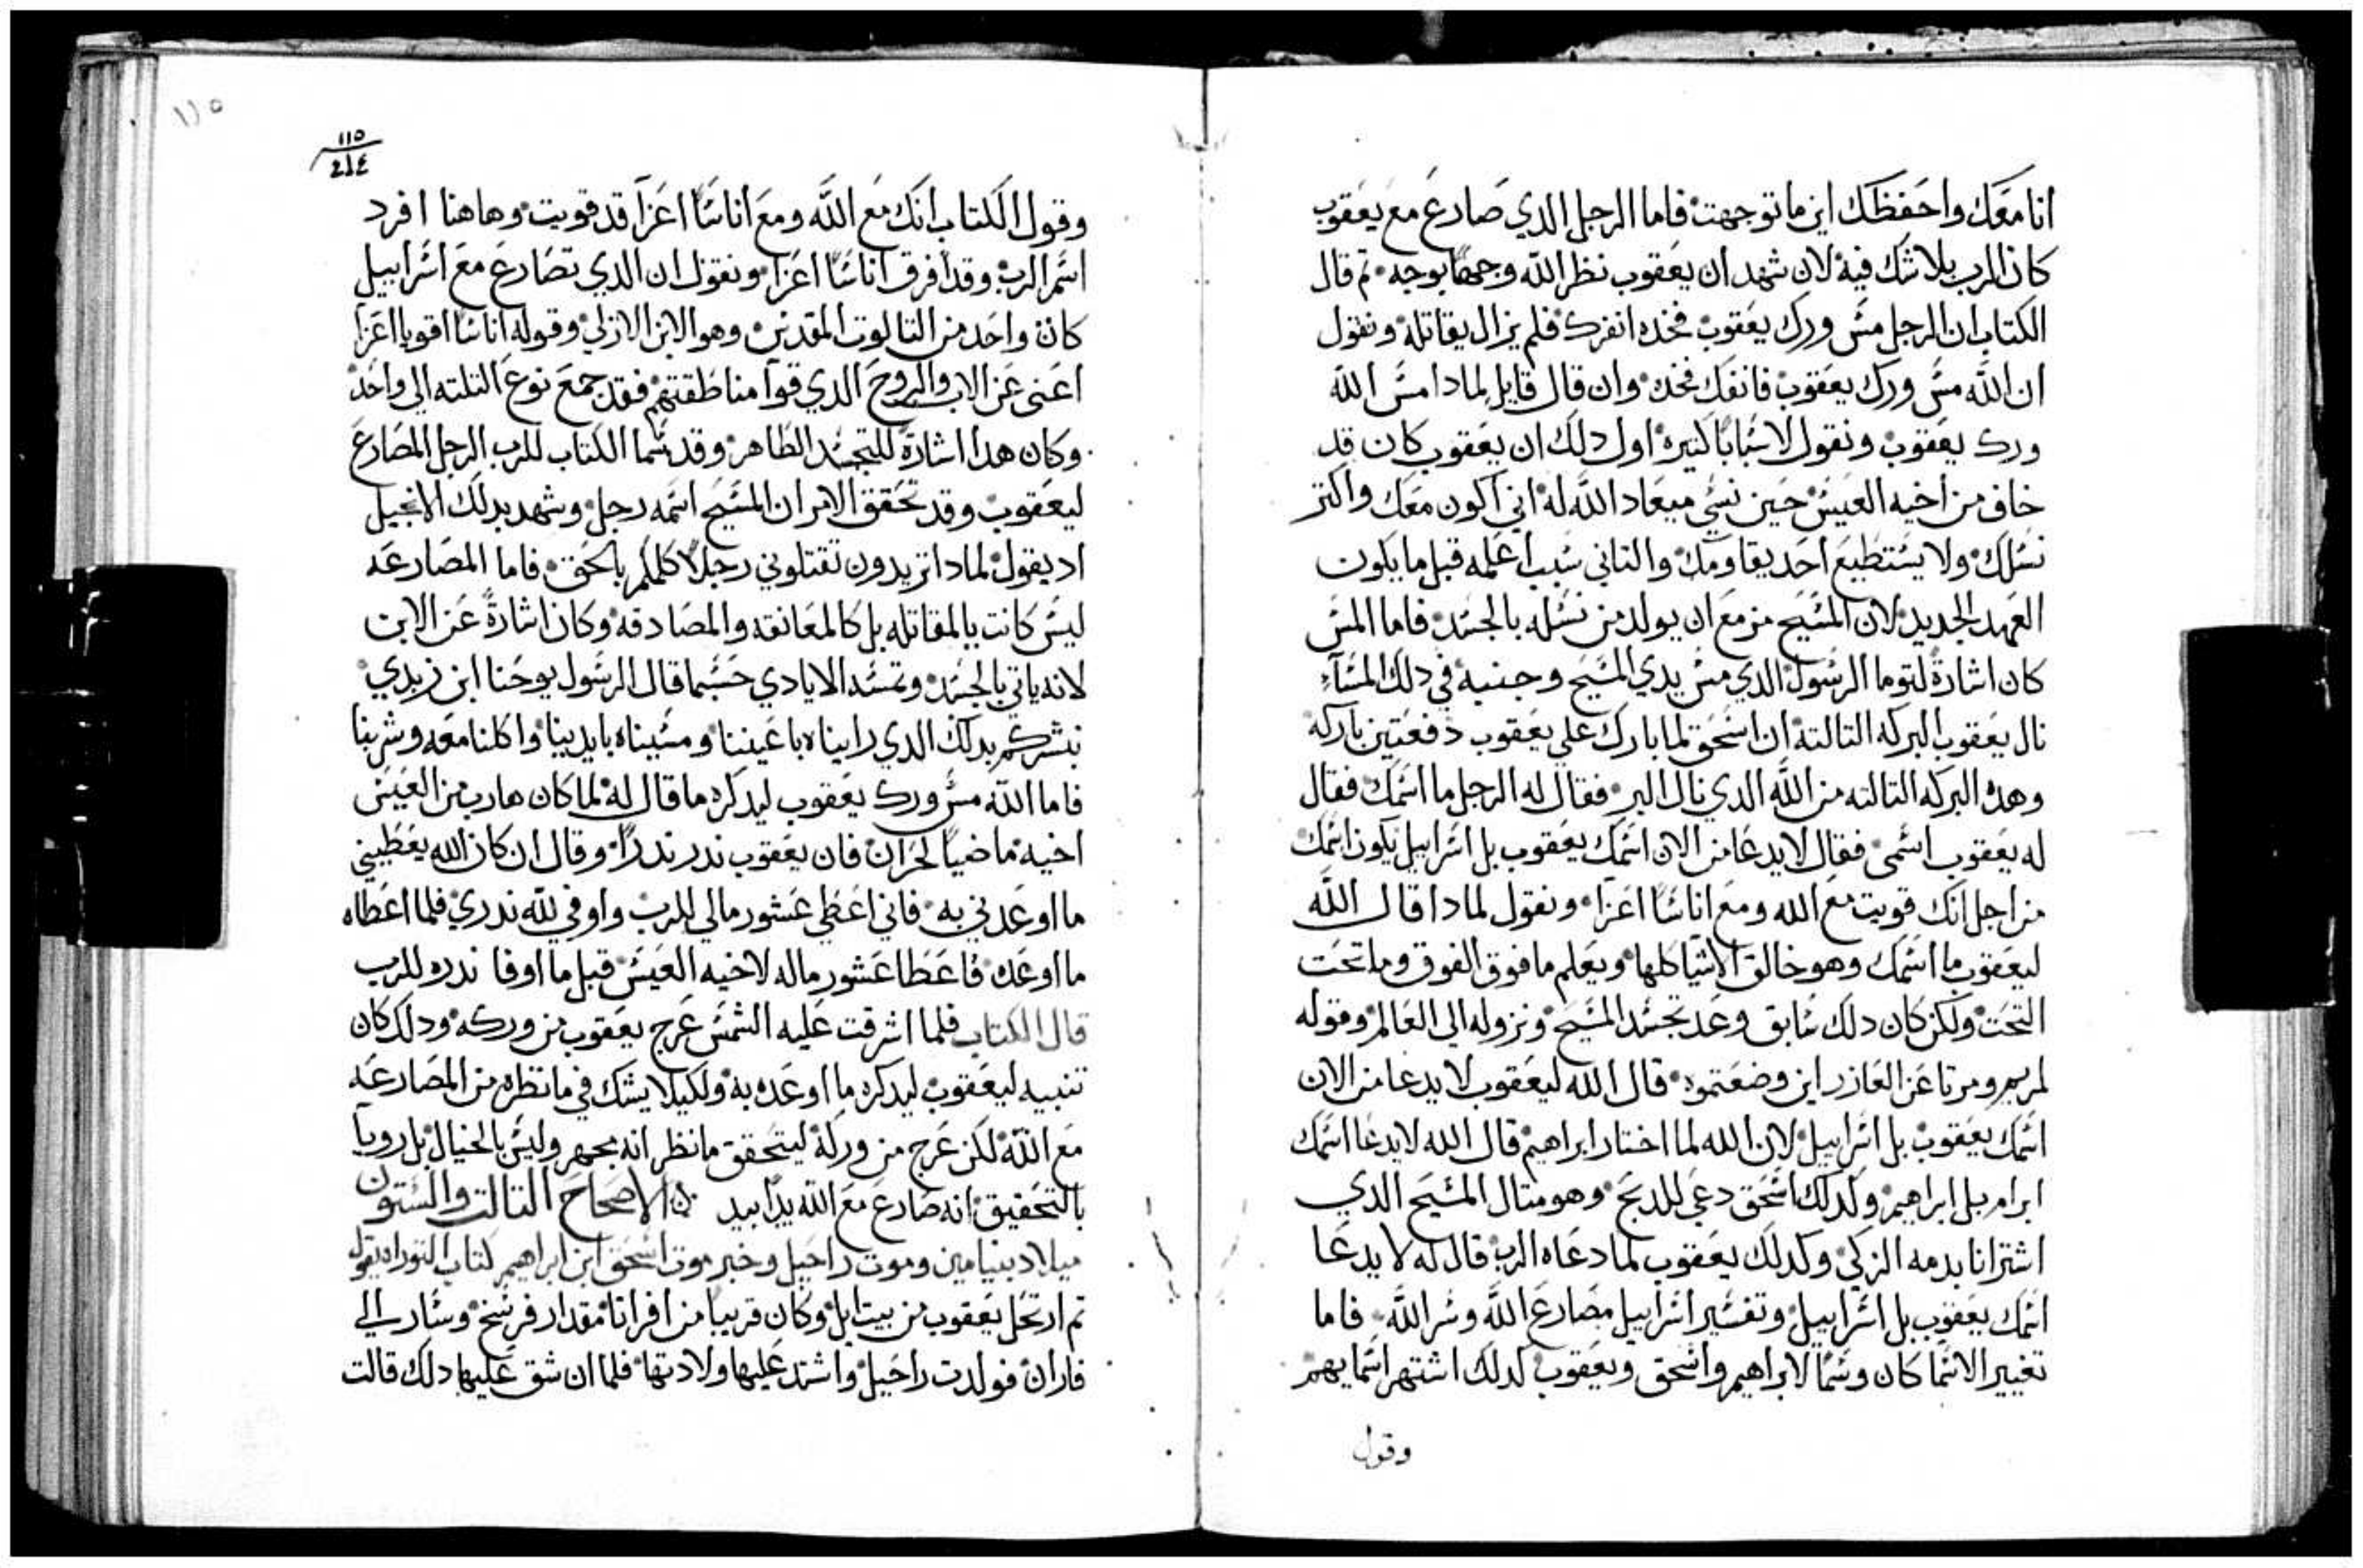 انا معك واحفظك اين ما توجهت فاما الرجل الدي صارع مع يعقوب
كان الرب بلا شك فيه لان شهد ان يعقوب نظر الله وجهًا بوجه تم قال
الكتاب ان الرجل مس ورك يعقوب فخده انفرك فلم يزال يقاتله ونقول
ان الله مس ورك يعقوب فانفك فخده وان قال قايل لمادا مس الله
ورك يعقوب ونقول لاسبابًا كتيره اول دلك ان يعقوب كان قد
خاف من اخيه العيس حين نسي ميعاد الله له اني اكون معك واكتر
نسلك ولا يستطيع احد يقاومك والتاني سبب اعلمه قبل ما يكون
العهد الجديد لان المسيح مزمع ان يولد من نسله بالجسد فاما المس
كان اشارة لتوما الرسول الدي مس يدي المسيح وجنبه في دلك المساء
نال يعقوب البركه التالته ان اسحق لما بارك علي يعقوب دفعتين باركه
وهده البركه التالته من الله الدي نال البر فقال له الرجل ما اسمك فقال
له يعقوب اسمي فقال لا يدعا من الان اسمك يعقوب بل اسراييل يكون اسمك
من اجل انك قويت مع الله ومع اناسًا اعزا ونقول لمادا قال الله
ليعقوب ما اسمك وهو خالق الاشيا كلها ويعلم ما فوق الفوق وما تحت
التحت ولكن كان دلك سابق وعد تجسد المسيح ونزوله الي العالم وقوله
لمريم ومرتا عن العازر اين وضعتموه قال الله ليعقوب لا يدعا من الان
اسمك يعقوب بل اسراييل لان الله لما اختار ابراهيم قال الله لا يدعا اسمك
ابرام بل ابراهيم ولدلك اسحق دعي للدبح وهو متال المسيح الدي
اشترانا بدمه الزكي وكدلك يعقوب لما دعاه الرب قال له لا يدعا
اسمك يعقوب بل اسراييل وتفسير اسراييل مصارع الله وسر الله فاما
تغيير الاسما كان وسما لابراهيم واسحق ويعقوب لدلك اشتهر اسمايهم
وقول
١١٥
١١٥
٢١٤
وقول الكتاب انك مع الله ومع اناسًا اعزا قد قويت وهاهنا افرد
اسم الرب وقد افرق اناسًا اعزا ونقول ان الدي تصارع مع اسراييل
كان واحد من التالوت المقدس وهو الابن الازلي وقوله اناسًا اقويا اعزا
اعني عن الاب والروح الدي قوا مناطقتهم فقد جمع نوع التلته الي واحد
وكان هدا اشارة للتجسد الظاهر وقد سما الكتاب للرب الرجل المصارع
ليعقوب وقد تحقق الامر ان المسيح اسمه رجل وشهد بدلك الانجيل
اد يقول لمادا تريدون تقتلوني رجلًا كلمكم بالحق فاما المصارعه
ليس كانت بالمقاتله بل كالمعانقه والمصادقه وكان اشارة عن الابن
لانه ياتي بالجسد وتمسه الايادي حسبما قال الرسول يوحنا ابن زبدي
نبشركم بدلك الدي رايناه باعيننا ومسيناه بايدينا واكلنا معه وشربنا
فاما الله مس ورك يعقوب ليدكره ما قال له لما كان هارب من العيس
اخيه ماضيًا لحران فان يعقوب ندر ندرًا وقال ان كان الله يعطيني
ما اوعدني به فاني اعطي عشور مالي للرب واوفي لله ندري فلما اعطاه
ما اوعده فاعطا عشور ماله لاخيه العيس قبل ما اوفا ندره للرب
قال الكتاب فلما اشرقت عليه الشمس عرج يعقوب من وركه ودلك كان
تنبيه ليعقوب ليدكره ما اوعده به ولكيلا يشك في ما نظره من المصارعه
مع الله لكن عرج من وركه ليتحقق ما نظر انه بجهر وليس بالخيال بل رويا
بالتحقيق انه صارع مع الله يدًا بيد الاصحاح التالت والستون
ميلاد بنيامين وموت راحيل وخبر موت اسحق ابن ابراهيم كتاب التوراه يقول
تم ارتحل يعقوب من بيت ايل وكان قريبا من افراتا مقدار فرسخ وسار الي
فاران فولدت راحيل واشتد عليها ولادتها فلما ان شق عليها دلك قالت